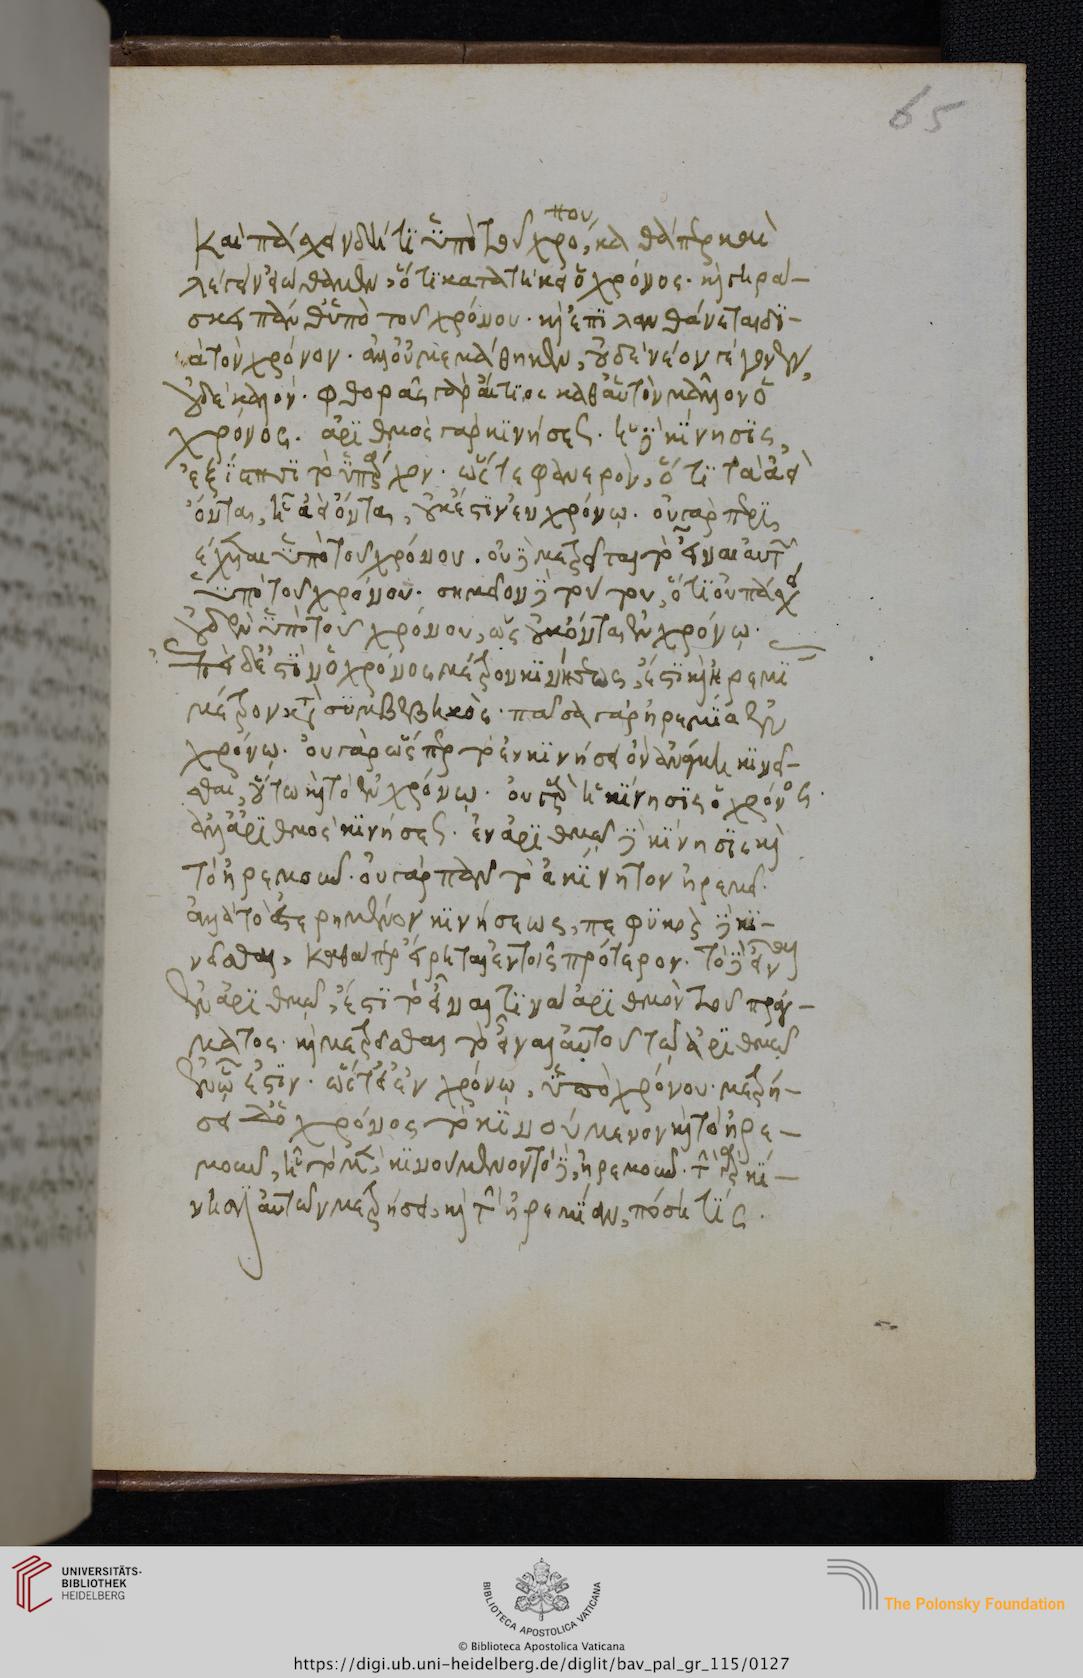 65
που
καὶ πάσχειν δή τι ὑπὸ τοῦ χρό, καθάπερ καὶ
λέγειν εἰώθαμεν, ὅτι κατατήκει ὁ χρόνος. καὶ γηρά-
σκει πάνθ' ὑπὸ τοῦ χρόνου. καὶ ἐπιλανθάνεται δι-
ὰ τὸν χρόνον. ἀλλ' οὐ μεμάθηκεν, οὐδὲ νέον γέγονεν,
οὐδὲ καλόν. φθορᾶς γὰρ αἴτιος καθ' αὑτὸν μᾶλλον ὁ
χρόνος. ἀριθμὸς γὰρ κινήσεως. ἡ δὲ κίνησις,
ἐξίστησι τὸ ὑπάρχον. ὥστε φανερὸν, ὅτι τὰ ἀεὶ
ὄντα, ᾗ ἀεὶ ὄντα, οὐκ ἔστιν ἐν χρόνῳ. οὐ γὰρ περι
έχεται ὑπὸ τοῦ χρόνου. οὐδὲ μετρεῖται τὸ εἶναι αὐτῶν
ὑπὸ τοῦ χρόνου. σημεῖον δὲ τούτου, ὅτι οὐ πάσχει
οὐδὲν ὑπὸ τοῦ χρόνου, ὡς οὐκ ὄντα ἐν χρόνῳ.
ἐπεὶ δ' ἐστὶν ὁ χρόνος μέτρον κινήσεως, ἔσται καὶ ἠρεμίας
μέτρον κατὰ συμβεβηκός. πᾶσα γὰρ ἠρεμία ἐν
χρόνῳ. οὐ γὰρ ὥσπερ τὸ ἐν κινήσει ὂν ἀνάγκη κινεῖ-
σθαι, οὕτω καὶ τὸ ἐν χρόνῳ. οὐ γὰρ κίνησις ὁ χρόνος.
ἀλλ' ἀριθμὸς κινήσεως. ἐν ἀριθμῷ δὲ κινήσεως καὶ
τὸ ἠρεμοῦν. οὐ γὰρ πᾶν τὸ ἀκίνητον ἠρεμεῖ.
ἀλλὰ τὸ ἐστερημένον κινήσεως, πεφυκὸς δὲ κι-
νεῖσθαι, καθάπερ εἴρηται ἐν τοῖς πρότερον. τὸ δὲ εἶναι
ἐν ἀριθμῷ, ἐστὶ τὸ εἶναι τινὰ ἀριθμὸν τοῦ πράγ-
ματος. καὶ μετρεῖσθαι τὸ εἶναι αὐτοῦ τῷ ἀριθμῷ
ἐν ᾧ ἐστιν. ὥστ' εἰ ἐν χρόνῳ, ὑπὸ χρόνου. μετρή-
σει δ' ὁ χρόνος τὸ κινούμενον καὶ τὸ ἠρε-
μοῦν, ᾗ τὸ μὲν, κινούμενον τὸ δὲ, ἠρεμοῦν. τὴν γὰρ κί-
νησιν αὐτῶν μετρήσει, καὶ τὴν ἠρεμίαν, πόση τίς.
UNIVERSITÄTS-
BIBLIOTHEK
HEIDELBERG
BIBLIOTECA APOSTOLICA VATICANA
The Polonsky Foundation
© Biblioteca Apostolica Vaticana
https://digi.ub.uni-heidelberg.de/diglit/bav_pal_gr_115/0127